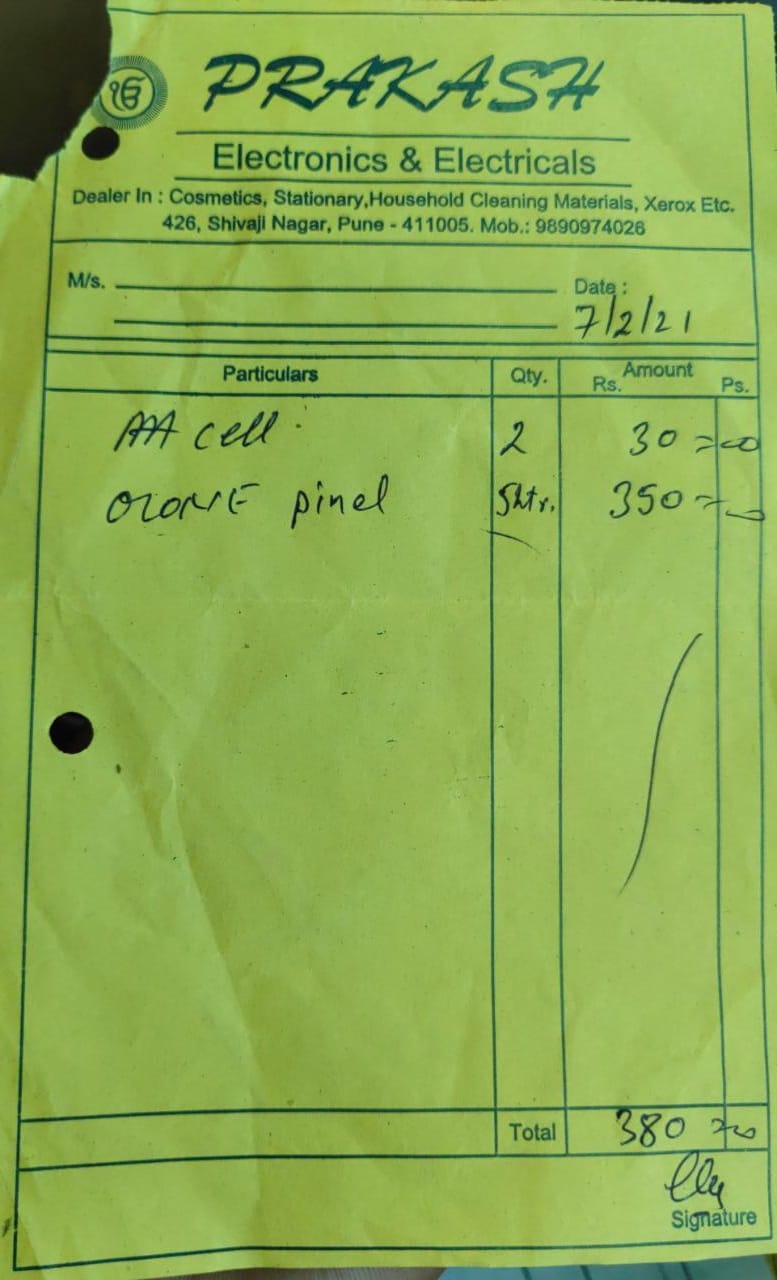 ੴ
PRAKASH
Electronics & Electricals
Dealer In : Cosmetics, Stationary,Household Cleaning Materials, Xerox Etc.
426, Shivaji Nagar, Pune - 411005. Mob.: 9890974026
M/s. Date :
7/2/21
Particulars Qty. Amount
Rs. Ps.
AA cell 2 30=00
OZONE pinel 5ltr. 350=00
Total 380=00
Signature